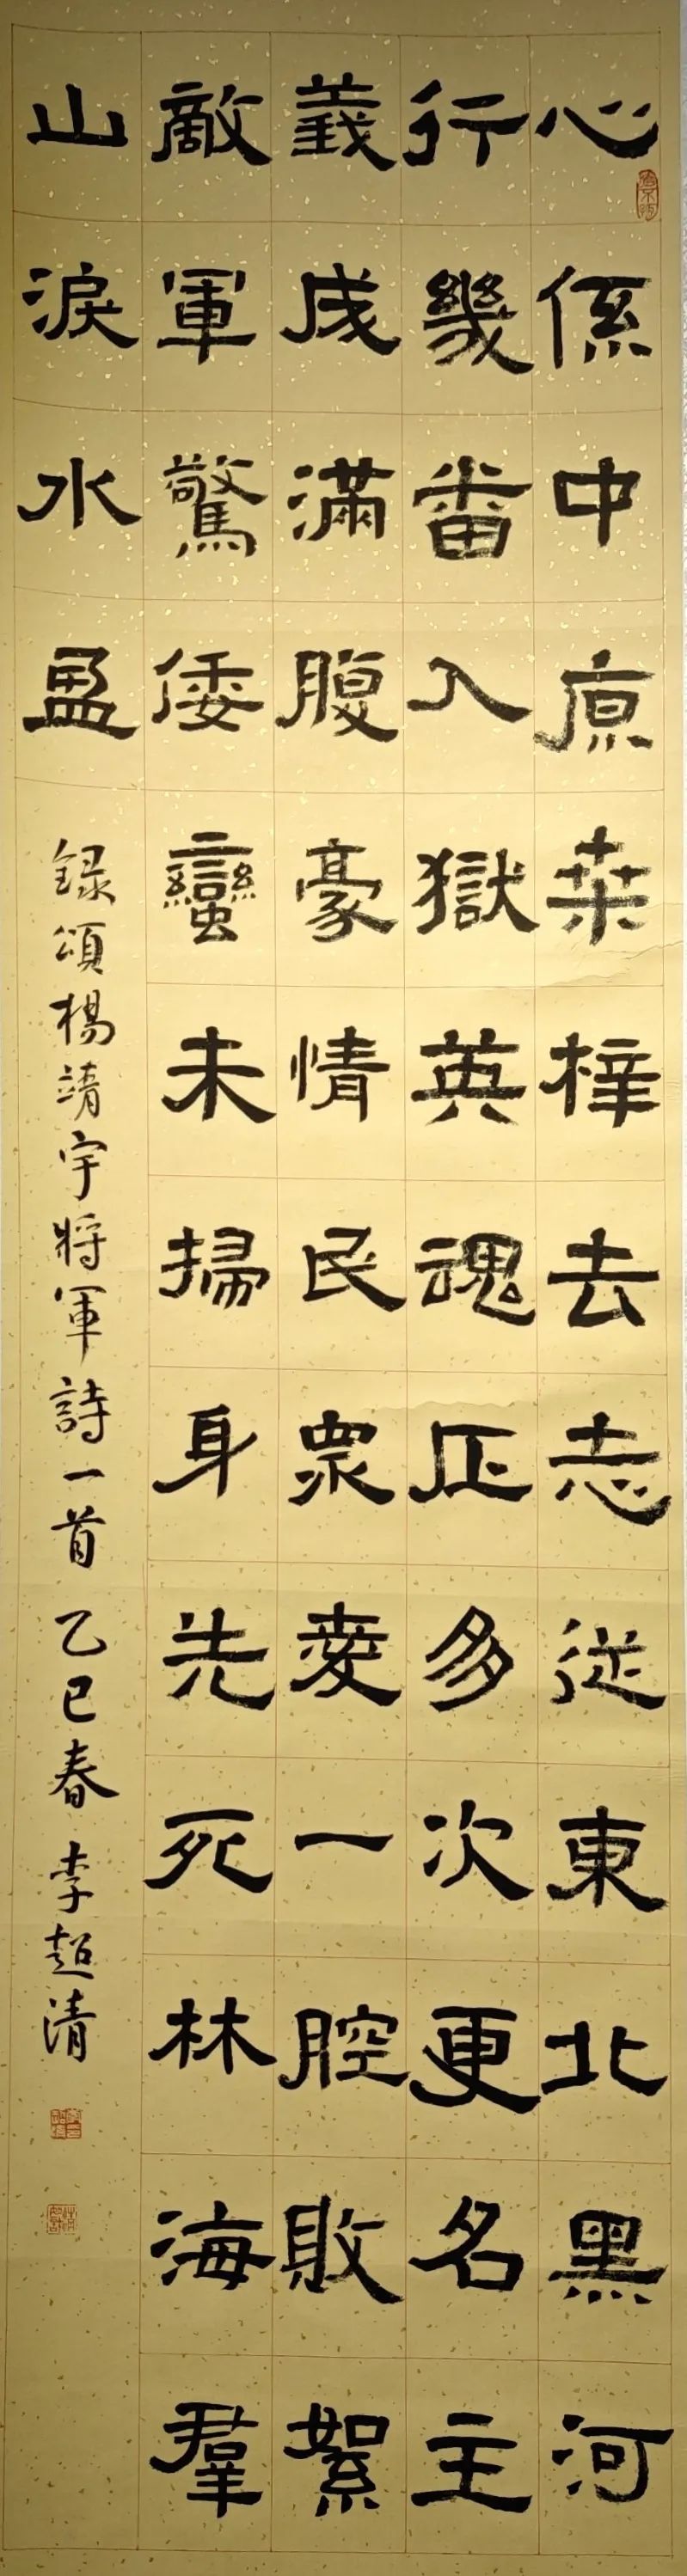 心係中原桒梓去志從東北黑河
行幾番入獄英魂正多次更名主
義成滿腹豪情民眾爱一腔敗絮
敵軍驚倭蠻未掃身先死林海羣
山淚水盈
録頌楊靖宇將軍詩一首 乙巳春 李超清